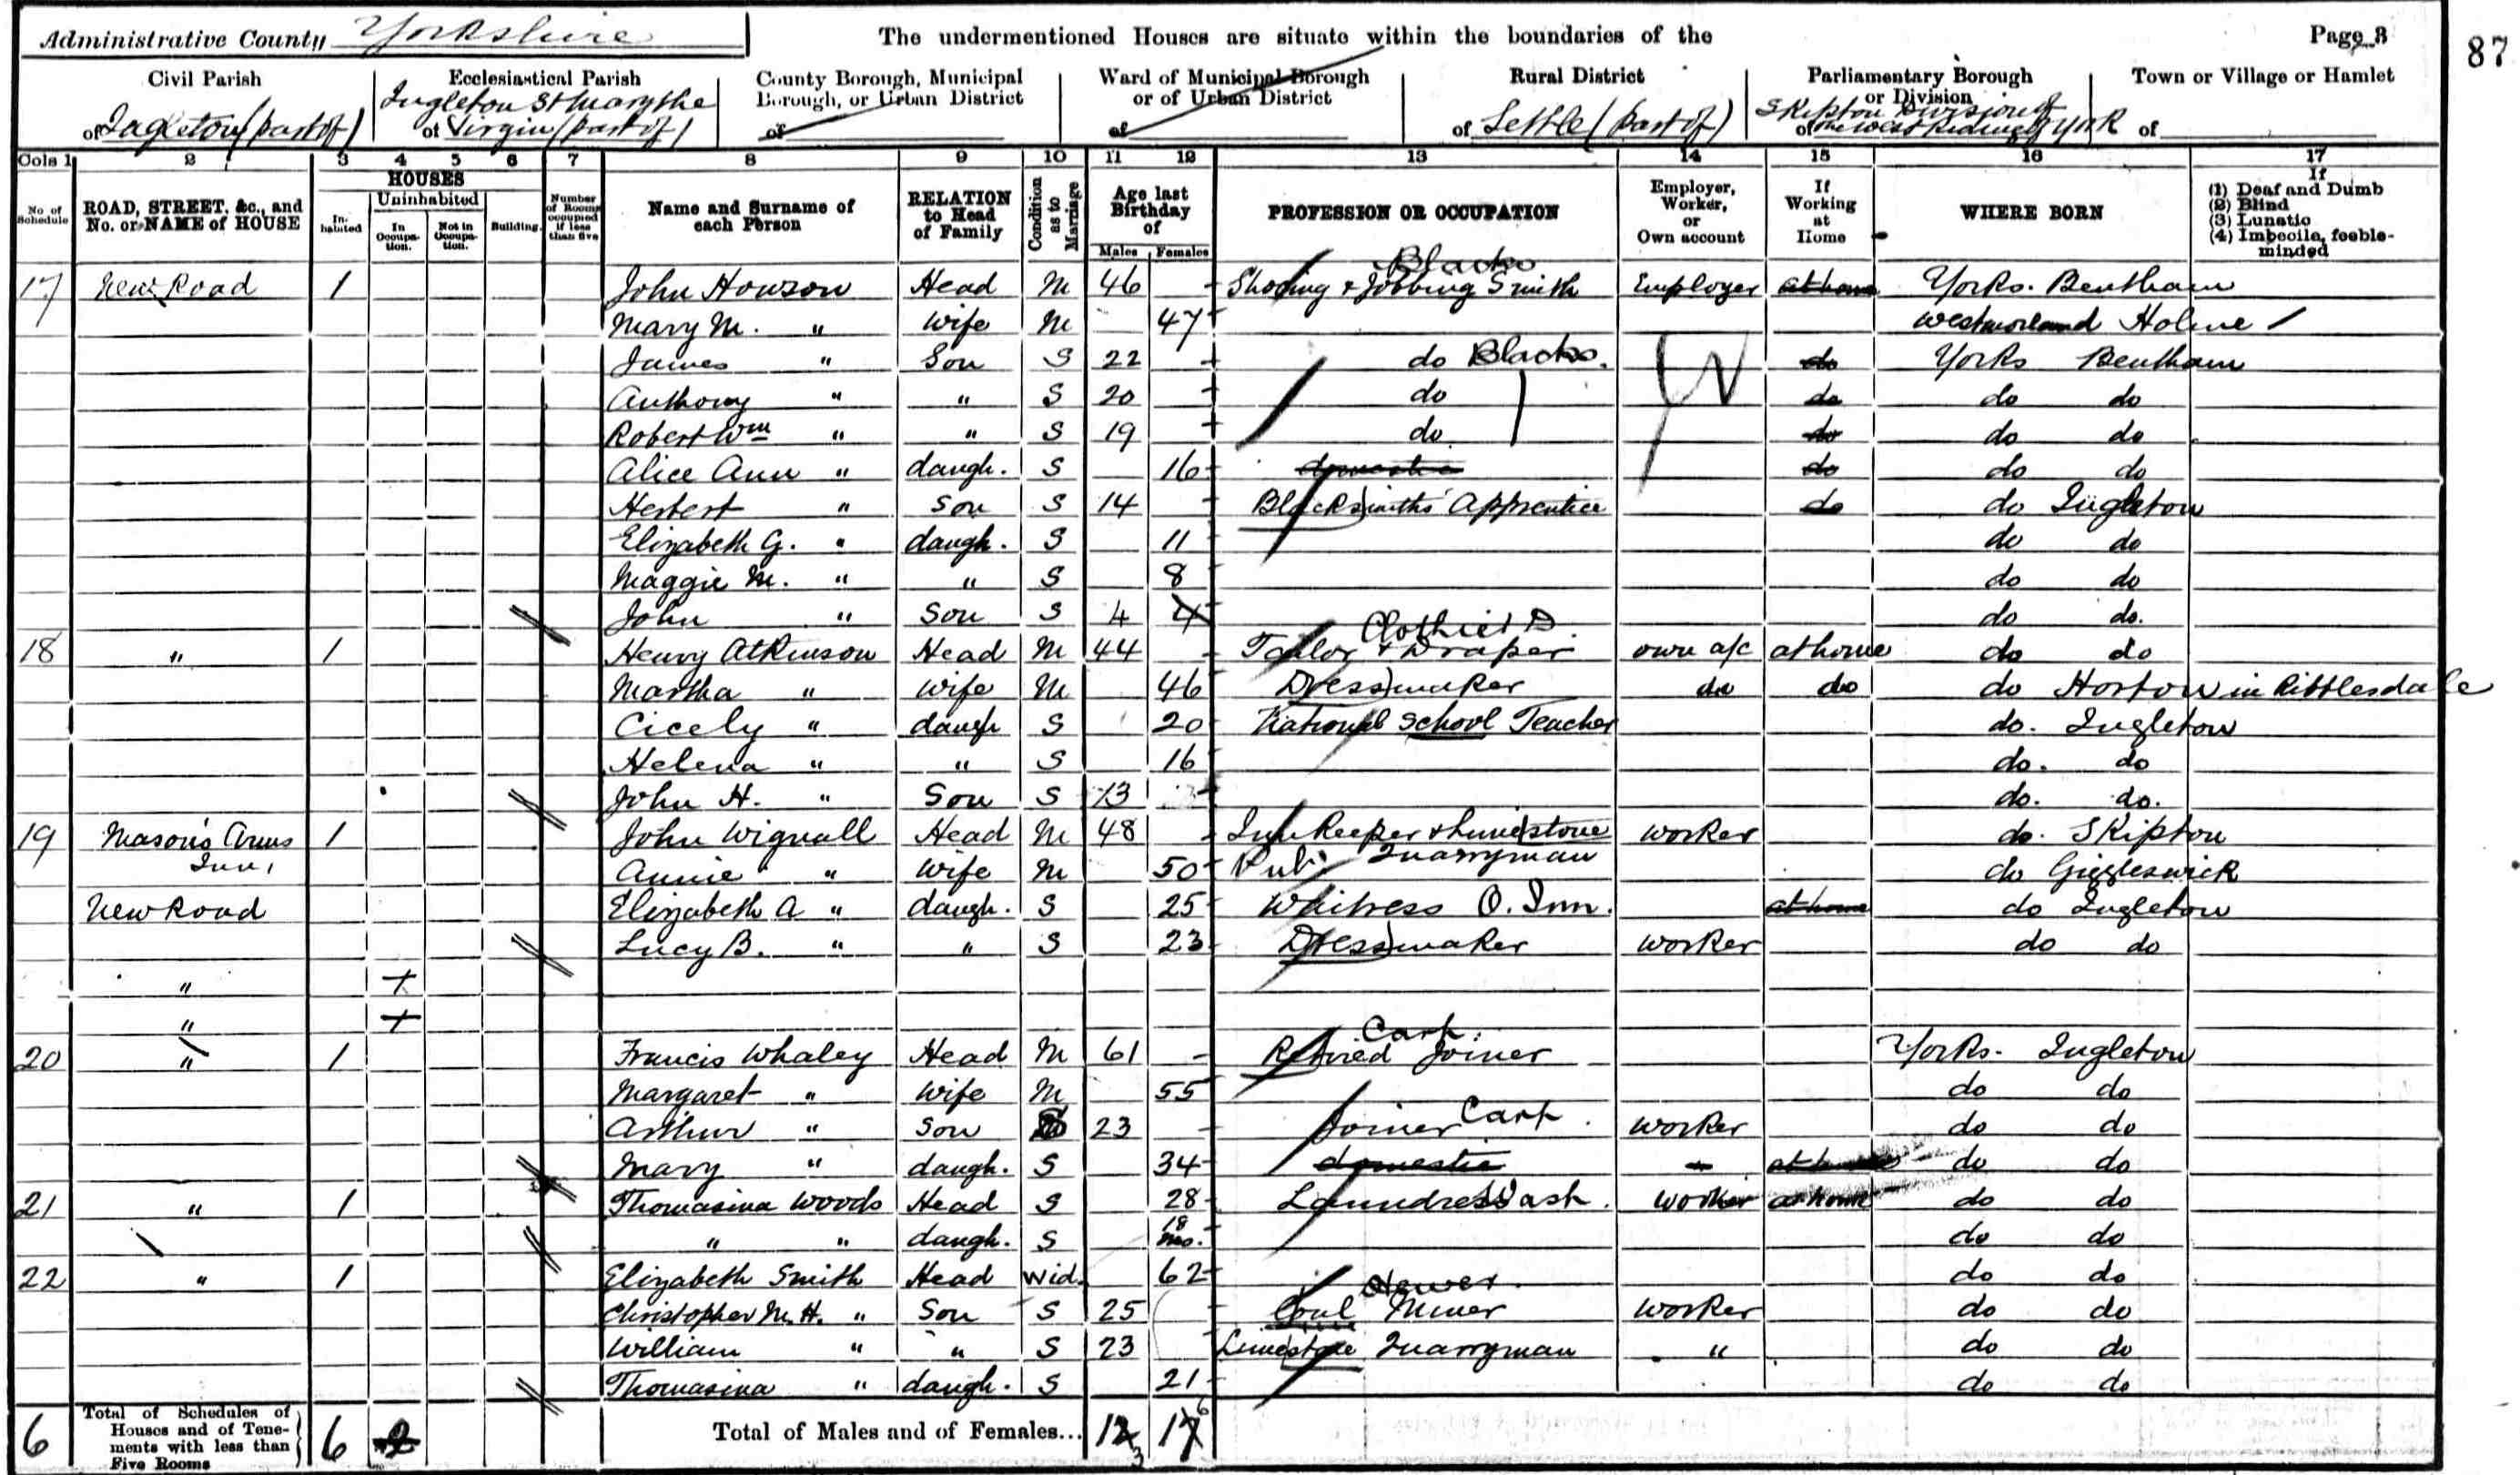 Administrative County Yorkshire The undermentioned Houses are situate within the boundaries of the Page 3
87
Civil Parish Ecclesiastical Parish County Borough, Municipal Borough, or Urban District Ward of Municipal Borough or of Urban District Rural District Parliamentary Borough or Division Town or Village or Hamlet
of Ingleton (part of) Ingleton St Mary the of Virgin (part of) of of of Settle (part of) Skipton Division of of the West Riding of York of
Cols 1 2 3 4 5 6 7 8 9 10 11 12 13 14 15 16 17
No of Schedule ROAD, STREET, &c., and No. or NAME of HOUSE HOUSES In-habited Uninhabited In Occupa-tion. Not in Occupa-tion. Building. Number of Rooms occupied if less than five Name and Surname of each Person RELATION to Head of Family Condition as to Marriage Age last Birthday of Males Females PROFESSION OR OCCUPATION Employer, Worker, or Own account If Working at Home WHERE BORN If (1) Deaf and Dumb (2) Blind (3) Lunatic (4) Imbecile, feeble-minded
Blacks
17 New Road 1 John Howson Head M 46 - Shoeing & Jobbing Smith Employer at home Yorks. Bentham
Mary M. " Wife M 47 Westmorland Holme
James " Son S 22 do Blacks. W do Yorks Bentham
Anthony " " S 20 do do do do
Robert Wm " " S 19 do do do do
Alice Ann " daugh. S 16 domestic do do do
Herbert " Son S 14 Blacksmiths Apprentice do do Ingleton
Elizabeth G. " daugh. S 11 do do
Maggie M. " " S 8 do do
John " Son S 4 4 do do.
Clothier D
18 " 1 Henry Atkinson Head M 44 Tailor & Draper own a/c at home do do
Martha " Wife M 46 Dressmaker do do do Horton in Ribblesdale
Cicely " daugh S 20 National School Teacher do. Ingleton
Helena " " S 16 do. do
John H. " Son S 13 do. do.
19 Mason's Arms Inn, 1 John Wignall Head M 48 Inn Keeper & Limestone Worker do. Skipton
Annie " Wife M 50 Pub. Quarryman do Giggleswick
New Road Elizabeth A " daugh. S 25 Waitress O. Inn. at home do Ingleton
Lucy B. " " S 23 Dressmaker Worker do do
" +
" +
Carp.
20 " 1 Francis Whaley Head M 61 - Retired Joiner Yorks. Ingleton
Margaret " Wife M 55 do do
Arthur " Son S 23 Joiner Carp. Worker do do
Mary " daugh. S 34 domestic at home do do
21 " 1 Thomasina Woods Head S 28 Laundress Wash. Worker at home do do
" " daugh. S 18 mo. do do
22 " 1 Elizabeth Smith Head Wid. 62 do do
Hewer.
Christopher M. H. " Son S 25 Coal Miner Worker do do
William " " S 23 Limestone Quarryman " do do
Thomasina " daugh. S 21 do do
6 Total of Schedules of Houses and of Tene-ments with less than Five Rooms 6 2 Total of Males and of Females... 12 3 17 6